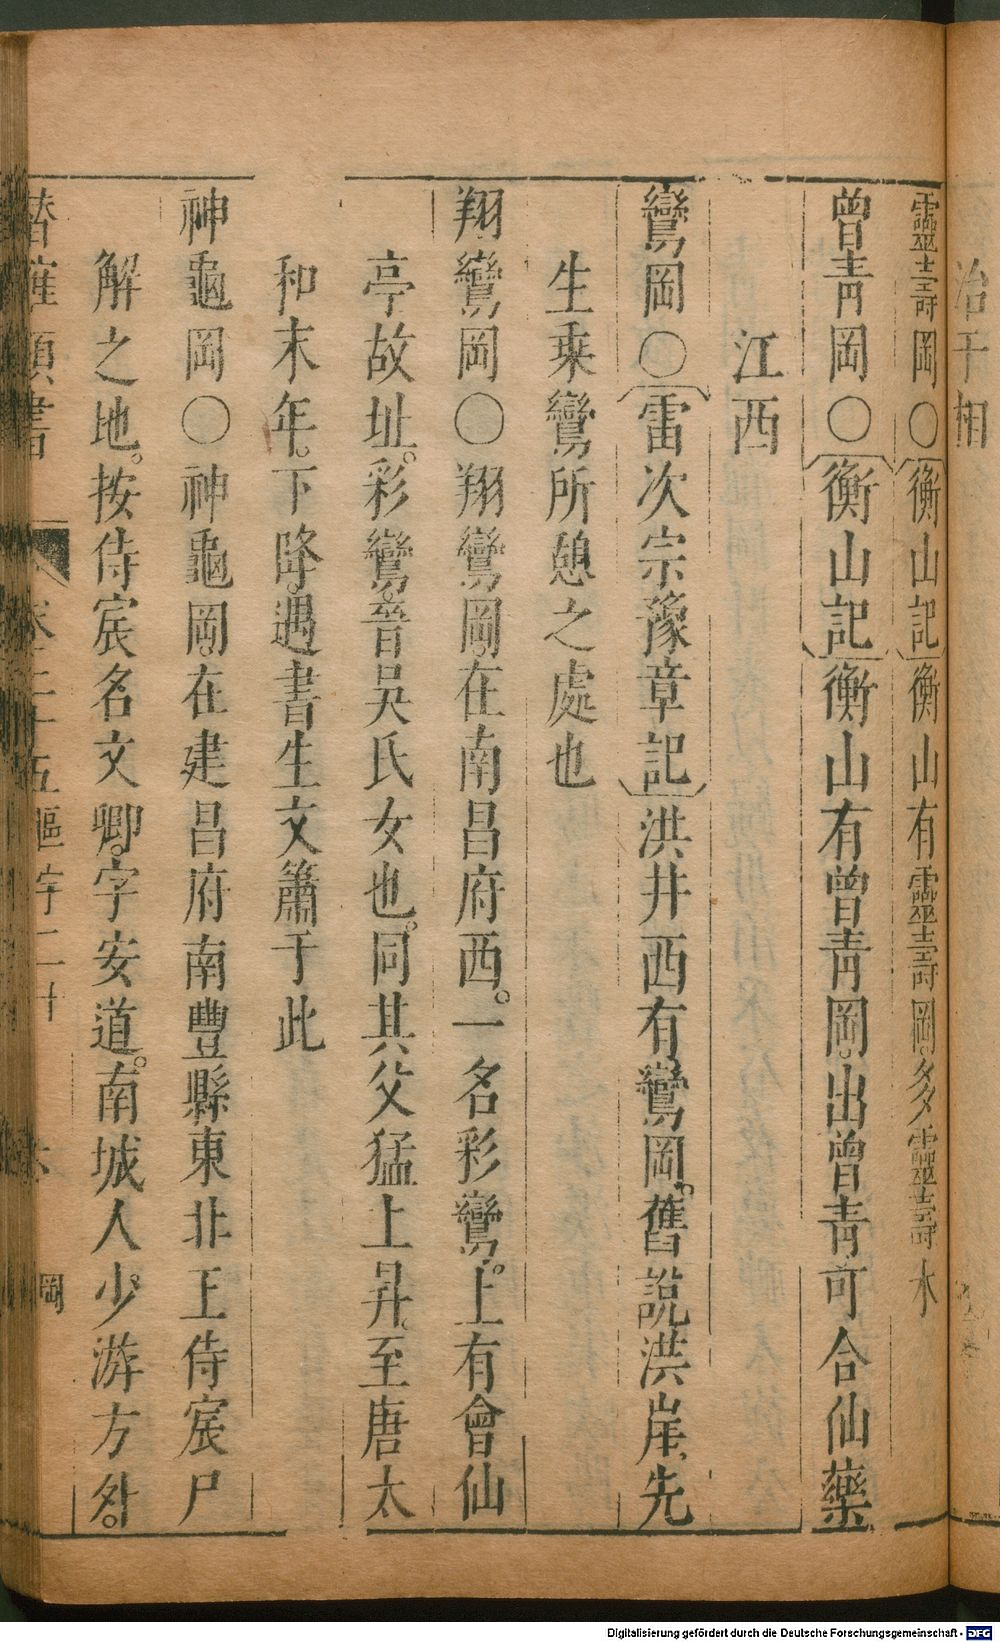 治于相
靈壽岡〇衡山記衡山有靈壽岡。多靈壽木
曾青岡〇衡山記衡山有曾青岡。出曾青可合仙藥
江西
鸞岡〇雷次宗豫章記洪井西有鸞岡。舊說洪崖先
生乗鸞所憩之處也
翔鸞岡〇翔鸞岡。在南昌府西。一名彩鸞。上有會仙
亭故址。彩鸞。晉吳氏女也。同其父猛上昇。至唐太
和末年。下降。遇書生文簫于此
神龜岡〇神龜岡。在建昌府南豐縣東北王侍宸尸
解之地。按侍宸名文卿。字安道。南城人少游方外。
潛確類書
卷二十五區宇二十
六
岡
Digitalisierung gefördert durch die Deutsche Forschungsgemeinschaft - DFG